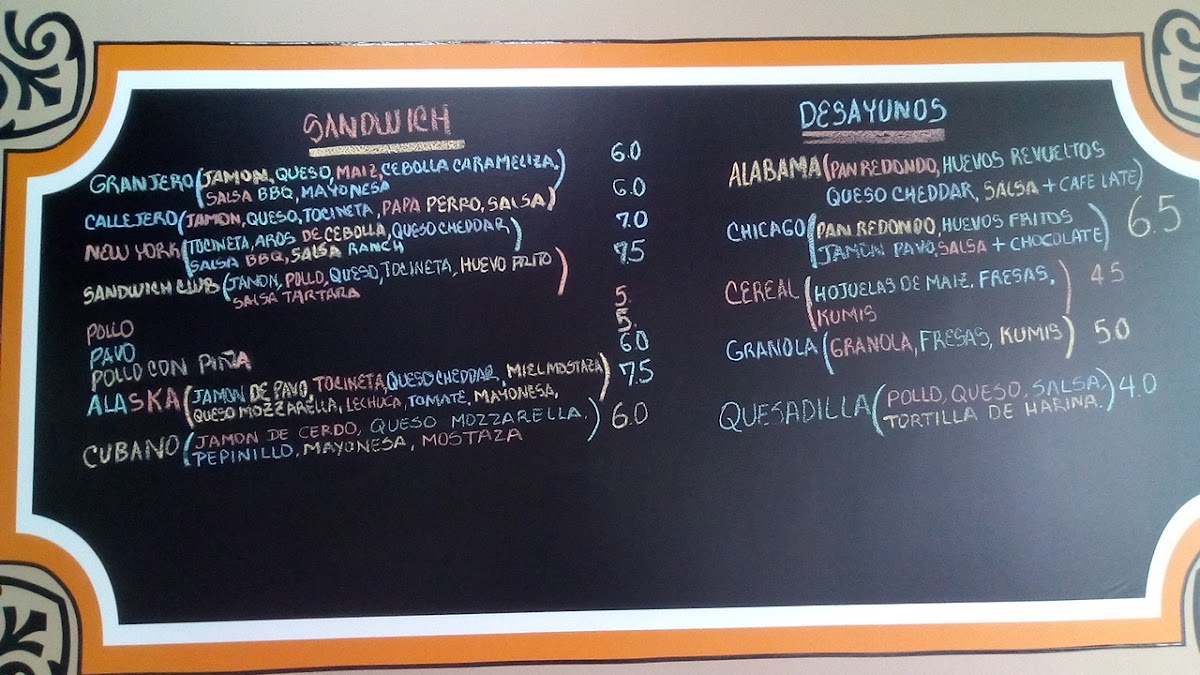 SANDWICH
GRANJERO (JAMON, QUESO, MAIZ, CEBOLLA CARAMELIZA, 6.0
SALSA BBQ, MAYONESA)
CALLEJERO (JAMON, QUESO, TOCINETA, PAPA PERRO, SALSA) 6.0
NEW YORK (TOCINETA, AROS DE CEBOLLA, QUESO CHEDDAR) 7.0
SALSA BBQ, SALSA RANCH
SANDWICH CLUB (JAMON, POLLO, QUESO, TOCINETA, HUEVO FRITO) 7.5
SALSA TARTARA
POLLO 5.
PAVO 5.
POLLO CON PIÑA 6.0
ALASKA (JAMON DE PAVO, TOCINETA, QUESO CHEDDAR, MIEL MOSTAZA) 7.5
QUESO MOZZARELLA, LECHUGA, TOMATE, MAYONESA,
CUBANO (JAMON DE CERDO, QUESO MOZZARELLA,) 6.0
PEPINILLO, MAYONESA, MOSTAZA
DESAYUNOS
ALABAMA (PAN REDONDO, HUEVOS REVUELTOS
QUESO CHEDDAR, SALSA + CAFE LATE)
CHICAGO (PAN REDONDO, HUEVOS FRITOS 6.5
JAMON PAVO, SALSA + CHOCOLATE)
CEREAL (HOJUELAS DE MAIZ, FRESAS,) 4.5
KUMIS
GRANOLA (GRANOLA, FRESAS, KUMIS) 5.0
QUESADILLA (POLLO, QUESO, SALSA, 4.0
TORTILLA DE HARINA.)